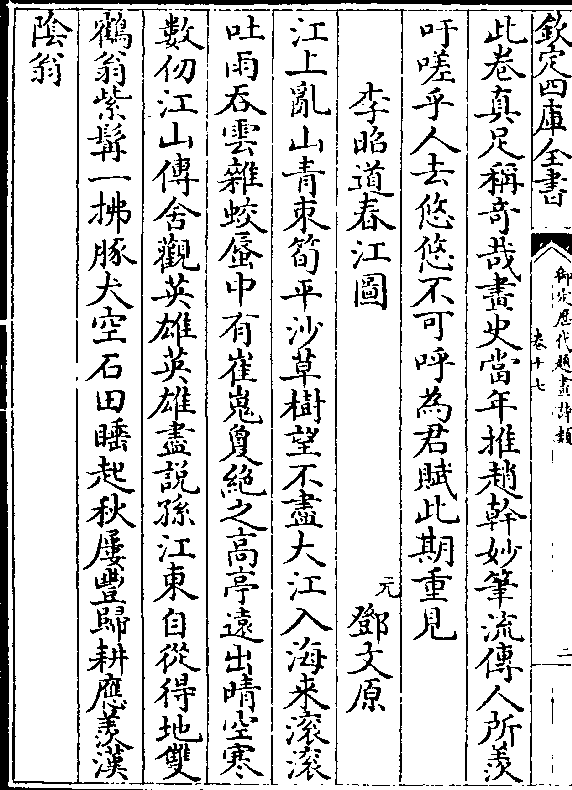 欽定四庫全書
御定歷代題畫詩類
卷十七
二
此卷真足稱奇哉畫史當年推趙幹妙筆流傳人所羨
吁嗟乎人去悠悠不可呼為君賦此期重見
李昭道春江圖
元 鄧文原
江上亂山青束筍平沙草樹望不盡大江入海来滚滚
吐雨吞雲雜蛟蜃中有崔嵬敻絶之高亭遠出晴空寒
數仞江山傳舍觀英雄英雄盡說孫江東自從得地雙
鶴翁紫髯一拂豚犬空石田睡起秋屢豐歸耕應羨漢
陰翁